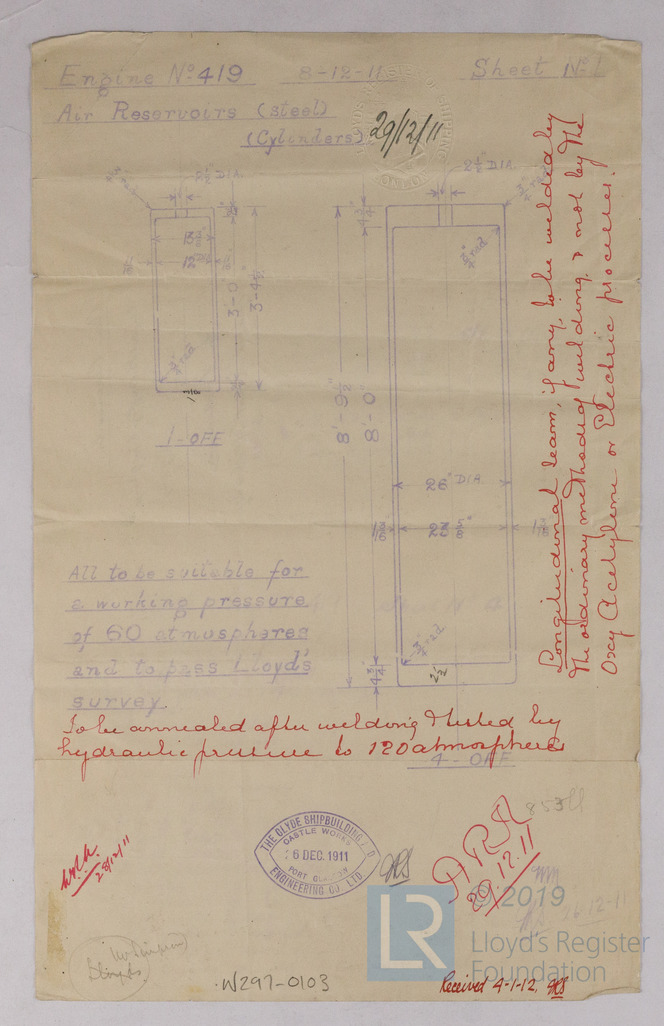 Engine No 419 8-12-11 Sheet No 1
Air Reservoirs (steel)
(Cylinders)
29/12/11
LLOYDS REGISTER OF SHIPPING
2½" DIA.
DIA.
¾" rad
13
12
3'-0"
3'-4½"
¾" rad
1-OFF
4¾"
8'-9½"
8'-0"
26" DIA.
23 5/8"
1 3/16
1 3/16
4¾"
4-OFF
Longitudinal seam, if any, to be welded by
the ordinary methods of welding, & not by the
Oxy Acetylene or Electric processes.
All to be suitable for
a working pressure
of 60 atmospheres
and to pass Lloyd's
survey.
To be annealed after welding & tested by
hydraulic pressure to 120 atmospheres
28/12/11
THE CLYDE SHIPBUILDING
CASTLE WORKS
26 DEC. 1911
PORT GLASGOW
ENGINEERING CO. LTD.
ARR
29.12.11
853
26-12-11
© 2019
LR
Lloyd's Register
Foundation
Lloyds
W297-0103
Received 4-1-12.